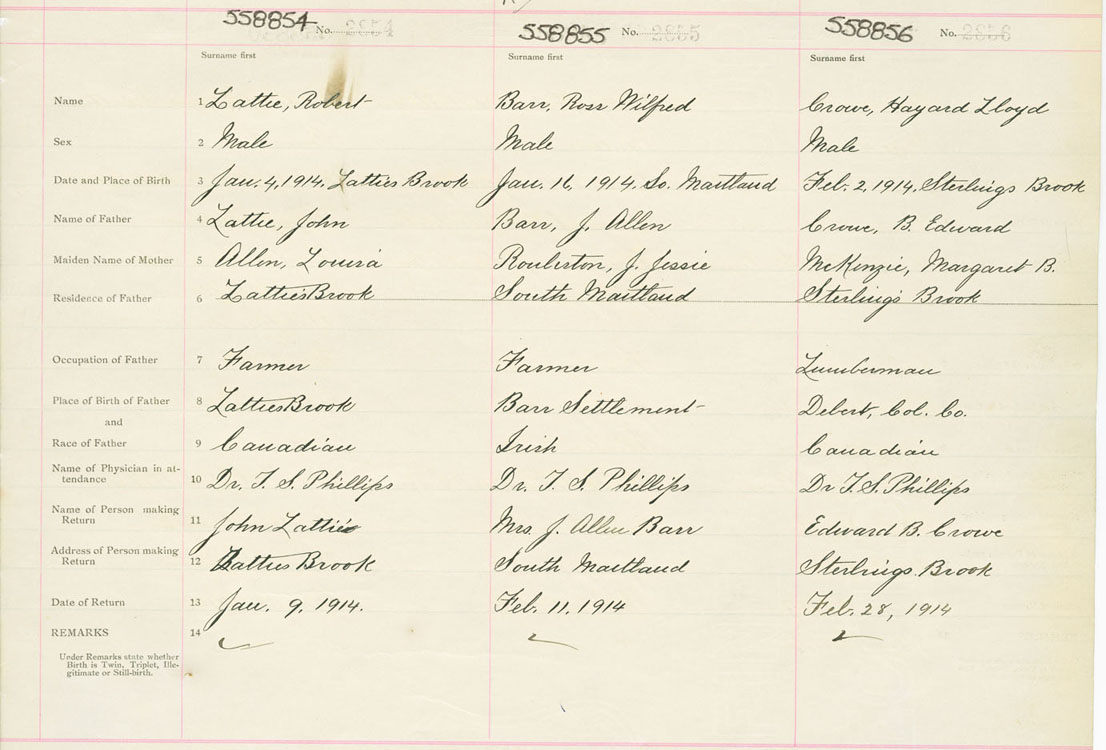 558854 No. 2854 558855 No. 2855 558856 No. 2856
Surname first Surname first Surname first
Name 1 Lattie, Robert Barr, Ross Wilfred Crowe, Hayard Lloyd
Sex 2 Male Male Male
Date and Place of Birth 3 Jan. 4, 1914. Latties Brook Jan. 16, 1914. So. Maitland Feb. 2, 1914, Sterlings Brook
Name of Father 4 Lattie, John Barr, J. Allen Crowe, B. Edward
Maiden Name of Mother 5 Allen, Louisa Roulerton, J. Jessie McKenzie, Margaret B.
Residence of Father 6 Latties Brook South Maitland Sterling's Brook
Occupation of Father 7 Farmer Farmer Lumberman
Place of Birth of Father 8 Latties Brook Barr Settlement Debert, Col. Co.
and
Race of Father 9 Canadian Irish Canadian
Name of Physician in at-
tendance 10 Dr. T. S. Phillips Dr. T. S. Phillips Dr T. S. Phillips
Name of Person making
Return 11 John Lattie Mrs. J. Allen Barr Edward B. Crowe
Address of Person making
Return 12 Latties Brook South Maitland Sterlings Brook
Date of Return 13 Jan. 9. 1914. Feb. 11. 1914 Feb. 28, 1914
REMARKS 14
Under Remarks state whether
Birth is Twin, Triplet, Ille-
gitimate or Still-birth.